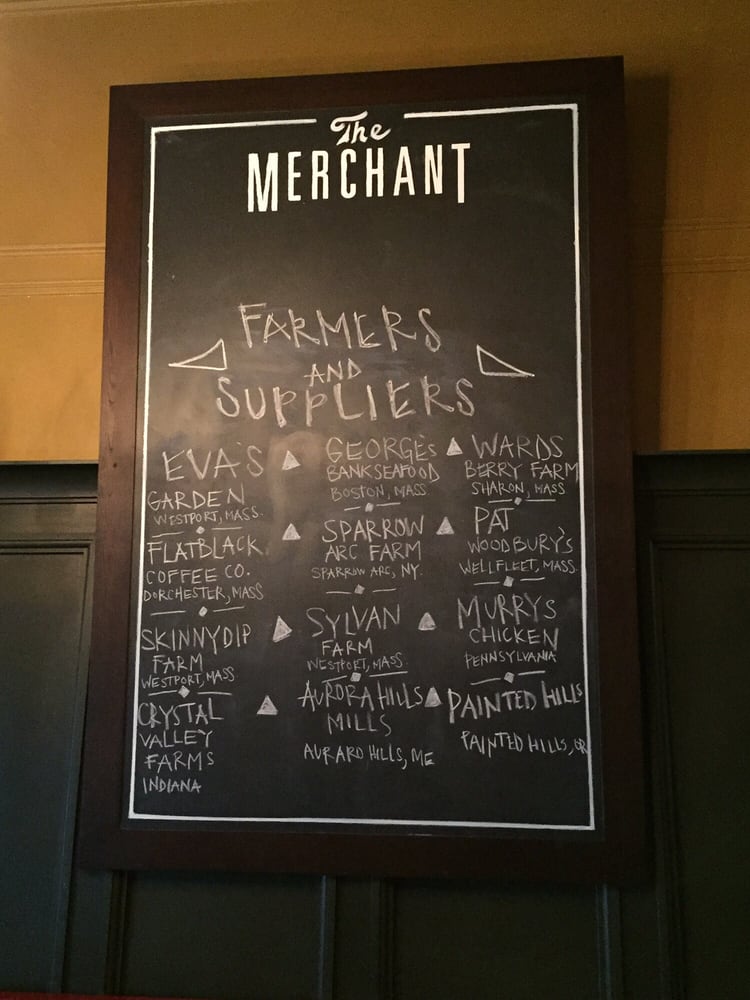 The
MERCHANT
FARMERS
AND
SUPPLIERS
EVA'S
GARDEN
WESTPORT, MASS.
FLATBLACK
COFFEE CO.
DORCHESTER, MASS
SKINNYDIP
FARM
WESTPORT, MASS
CRYSTAL
VALLEY
FARMS
INDIANA
GEORGE'S
BANK SEAFOOD
BOSTON, MASS
SPARROW
ARC FARM
SPARROW ARC, NY.
SYLVAN
FARM
WESTPORT, MASS.
AURORA HILLS
MILLS
AURARD HILLS, ME
WARDS
BERRY FARM
SHARON, MASS
PAT
WOODBURY'S
WELLFLEET, MASS.
MURRYS
CHICKEN
PENNSYLVANIA
PAINTED HILLS
PAINTED HILLS, OR